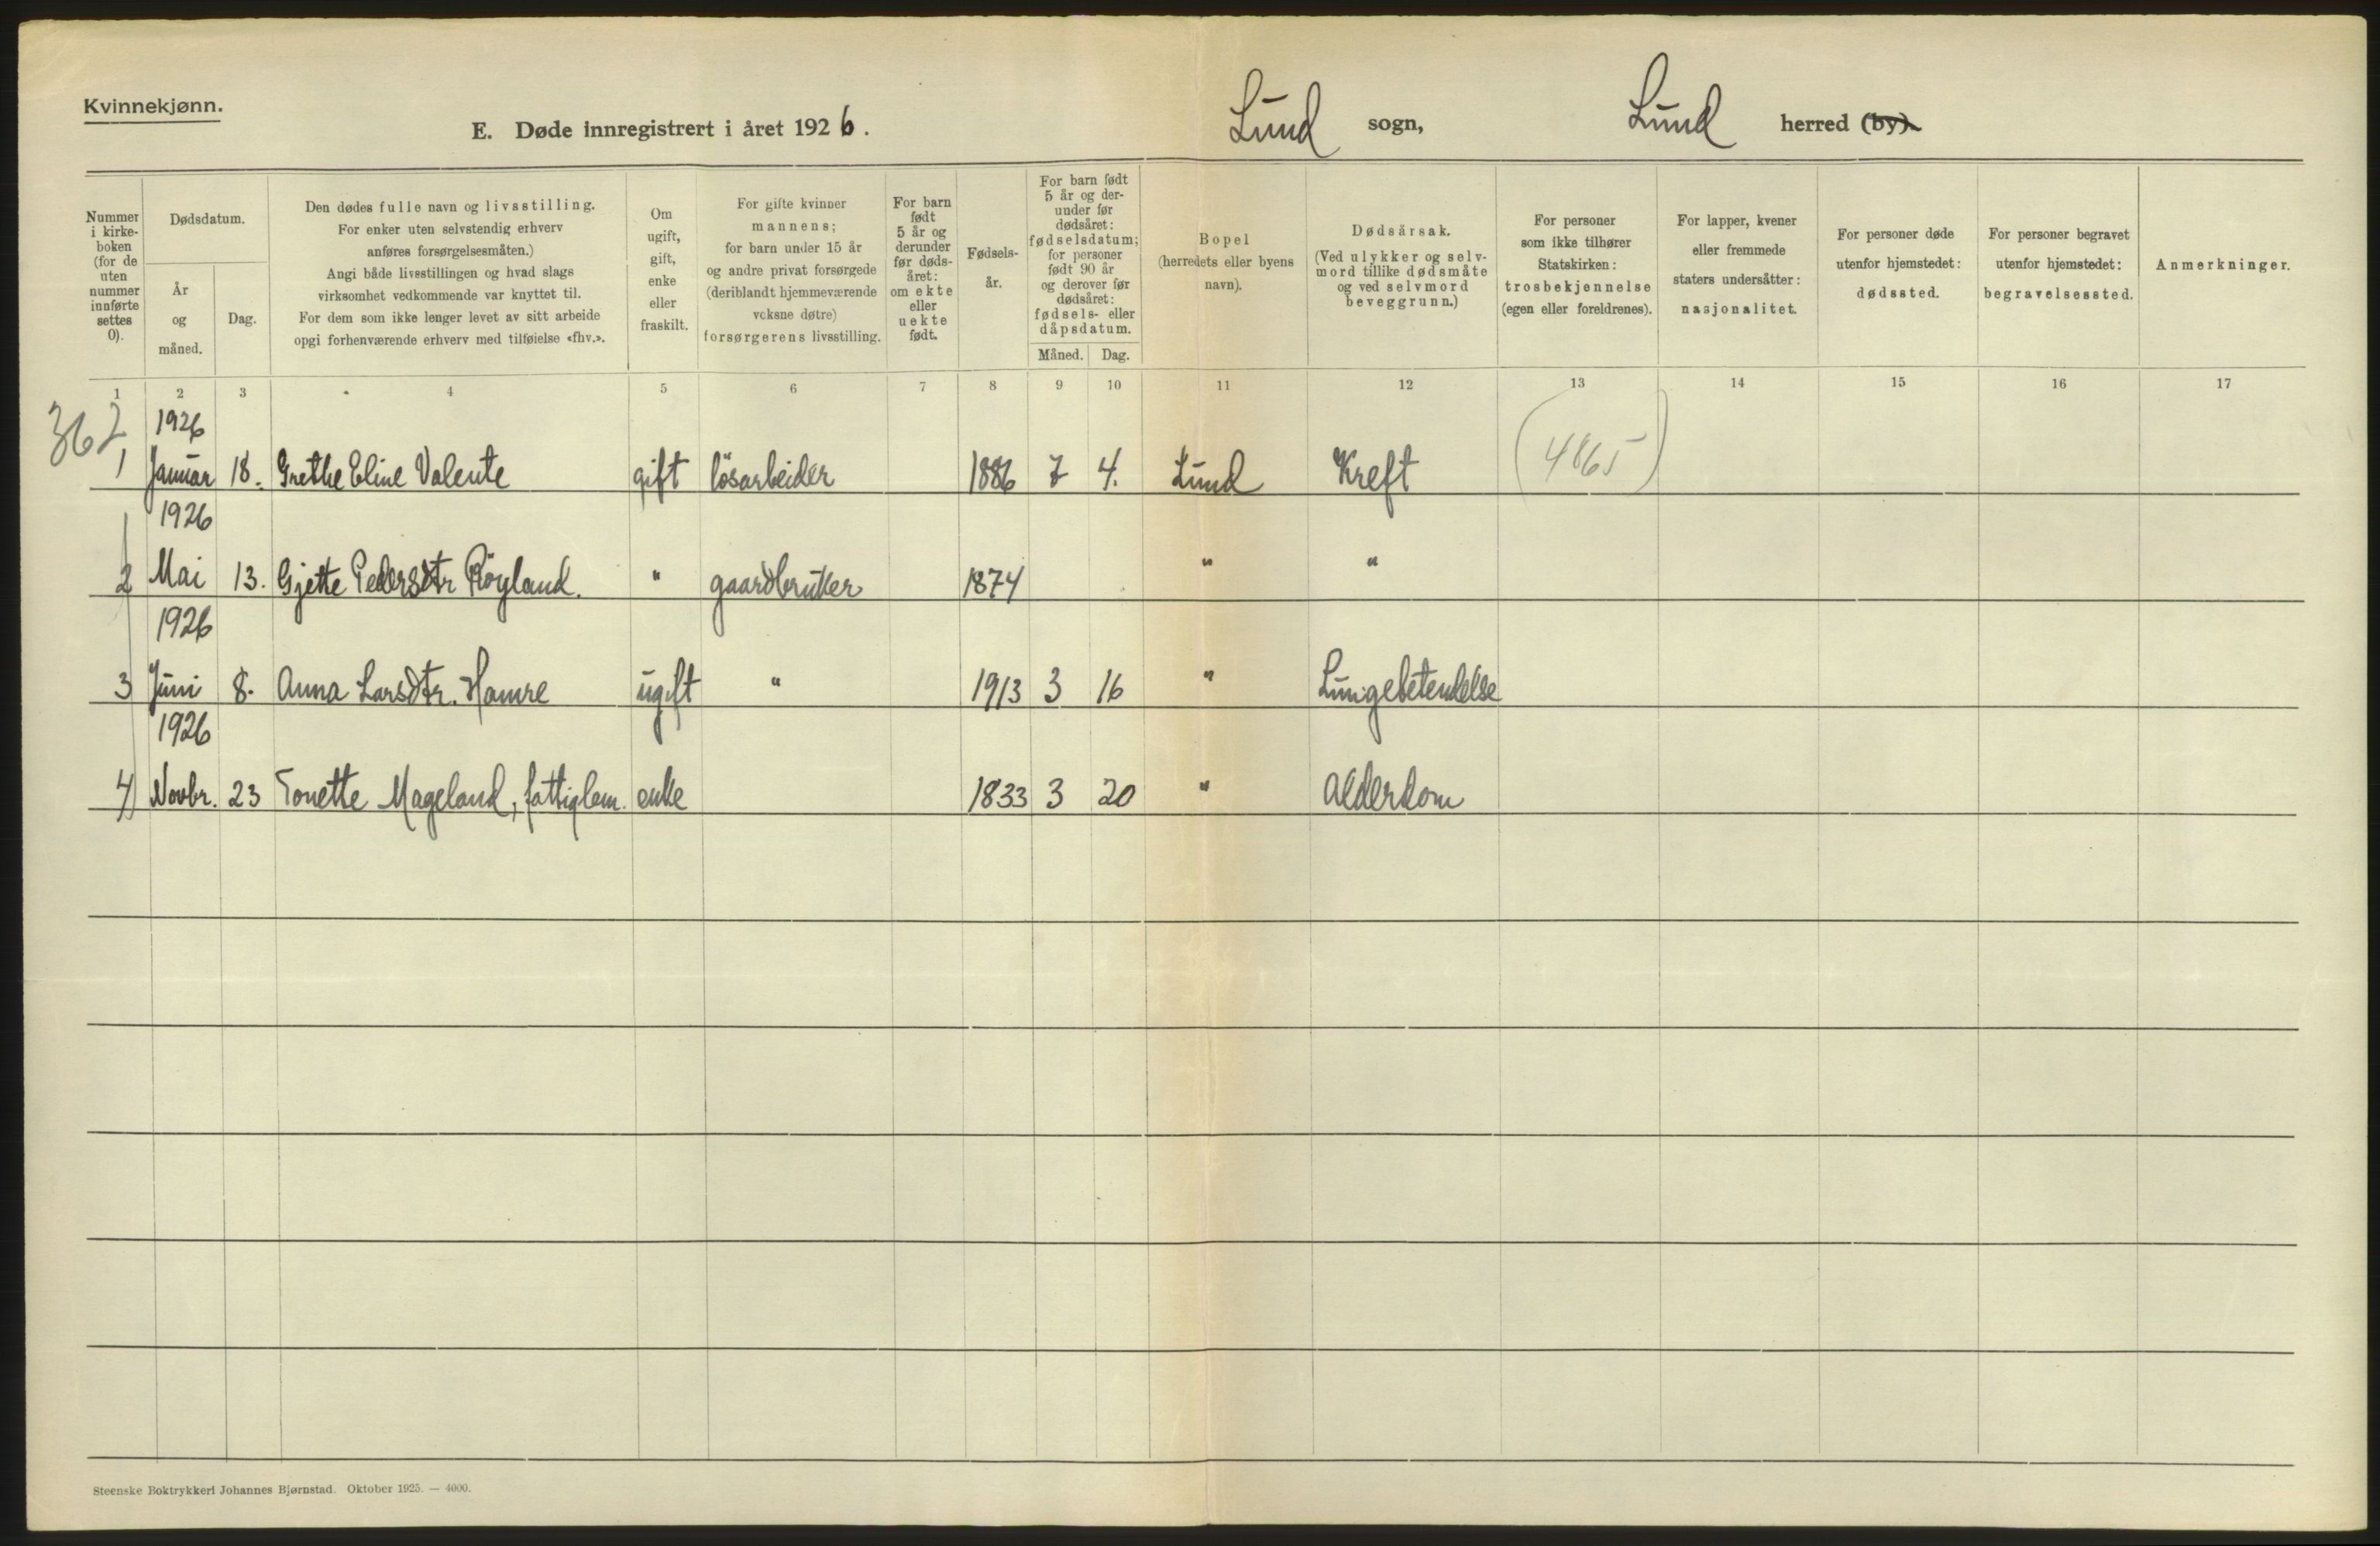 Kvinnekjønn.
E. Døde innregistrert i året 1926.
Lund sogn, Lund herred (by).
Nummer i kirke-boken (for de uten nummer innførte settes 0).
Dødsdatum.
År og måned.
Dag.
Den dødes fulle navn og livsstilling.
For enker uten selvstendig erhverv
anføres forsørgelsesmåten.)
Angi både livsstillingen og hvad slags
virksomhet vedkommende var knyttet til.
For dem som ikke lenger levet av sitt arbeide
opgi forhenværende erhverv med tilføielse «fhv.».
Om ugift, gift, enke eller fraskilt.
For gifte kvinner
mannens;
for barn under 15 år
og andre privat forsørgede
(deriblandt hjemmeværende
voksne døtre)
forsørgerens livsstilling.
For barn født 5 år og derunder før døds-året: om ekte eller uekte født.
Fødsels-år.
For barn født
5 år og der-
under før
dødsåret:
fødselsdatum;
for personer
født 90 år
og derover før
dødsåret:
fødsels- eller
dåpsdatum.
Måned. Dag.
Bopel
(herredets eller byens
navn).
Dødsårsak.
(Ved ulykker og selv-
mord tillike dødsmåte
og ved selvmord
beveggrunn.)
For personer
som ikke tilhører
Statskirken:
trosbekjennelse
(egen eller foreldrenes).
For lapper, kvener
eller fremmede
staters undersåtter:
nasjonalitet.
For personer døde
utenfor hjemstedet:
dødssted.
For personer begravet
utenfor hjemstedet:
begravelsessted.
Anmerkninger.
1 2 3 4 5 6 7 8 9 10 11 12 13 14 15 16 17
362
1926
1 Januar 18. Grethe Eline Valente gift løsarbeider 1886 7 4. Lund Kreft (4865)
1926
2 Mai 13. Gjette Pedersdtr Røyland. " gaardbruker 1874 " "
1926
3 Juni 8. Anna Larsdtr. Hamre ugift " 1913 3 16 " Lungebetendelse
1926
4 Novbr. 23 Tonette Mageland, fattiglem. enke 1833 3 20 " Alderdom
Steenske Boktrykkeri Johannes Bjørnstad. Oktober 1925. — 4000.